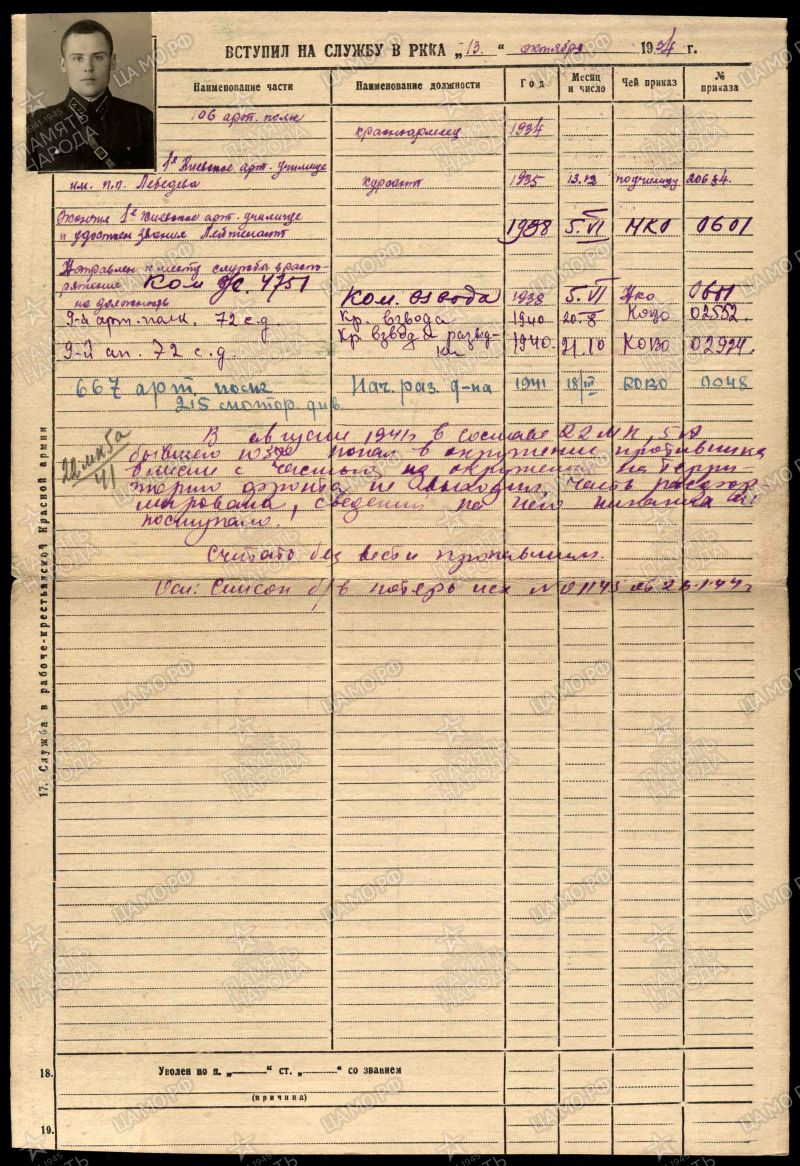 ВСТУПИЛ НА СЛУЖБУ В РККА „13.“ октября 1934 г.
Наименование части Наименование должности Год Месяц и число Чей приказ № приказа
106 арт. полк красноармеец 1934
1е Киевское арт. училище
им. П.П. Лебедева курсант 1935 13.12 по училищу 206 34.
Окончил 1е Киевское арт. училище
и удостоен звания Лейтенант 1938 5.VI НКО 0601
Направлен к месту службы в распо-
ряжение Ком 4751
на должность Ком. взвода 1938 5.VI НКО
9-й арт. полк. 72 с.д. Ком. взвода 1940 20.8 КОВО 02552
9-й ап. 72 с.д. Ком. взвода развед-
ки 1940. 21.10 КОВО 02924
667 арт. полк Нач. раз. д-на 1941 18/III КОВО 0048
215 мотор. див.
22 мк 5а
41
В августе 1941г в составе 22 МК, 5 А
бывшего ЮЗФ попал в окружение противника
вместе с частью из окружения на терри-
торию фронта не выходил, часть расфор-
мирована, сведений на него никаких не
поступало.
Считать без вести пропавшим.
Осн: Список б/в потерь исх № 01145 об 26.1.44г
17. Служба в рабоче-крестьянской Красной армии
18. Уволен по п. „ “ ст. „ “ со званием
(причина)
19.
ПАМЯТЬ
НАРОДА
1941-1945
ЦАМО.РФ